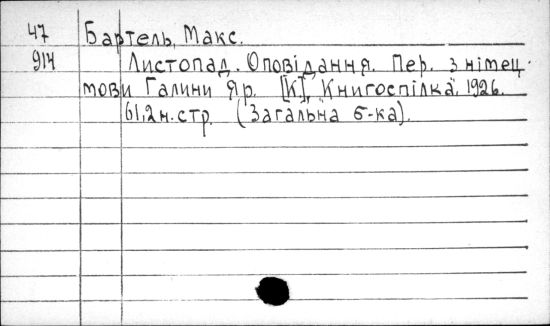 47 Бартель, Макс.
914 Листопад. Оповідання. Пер. з німец.
мови Галини Яр. [К.], "Книгоспілка", 1926.
61,2 н. стр. (Загальна б-ка).